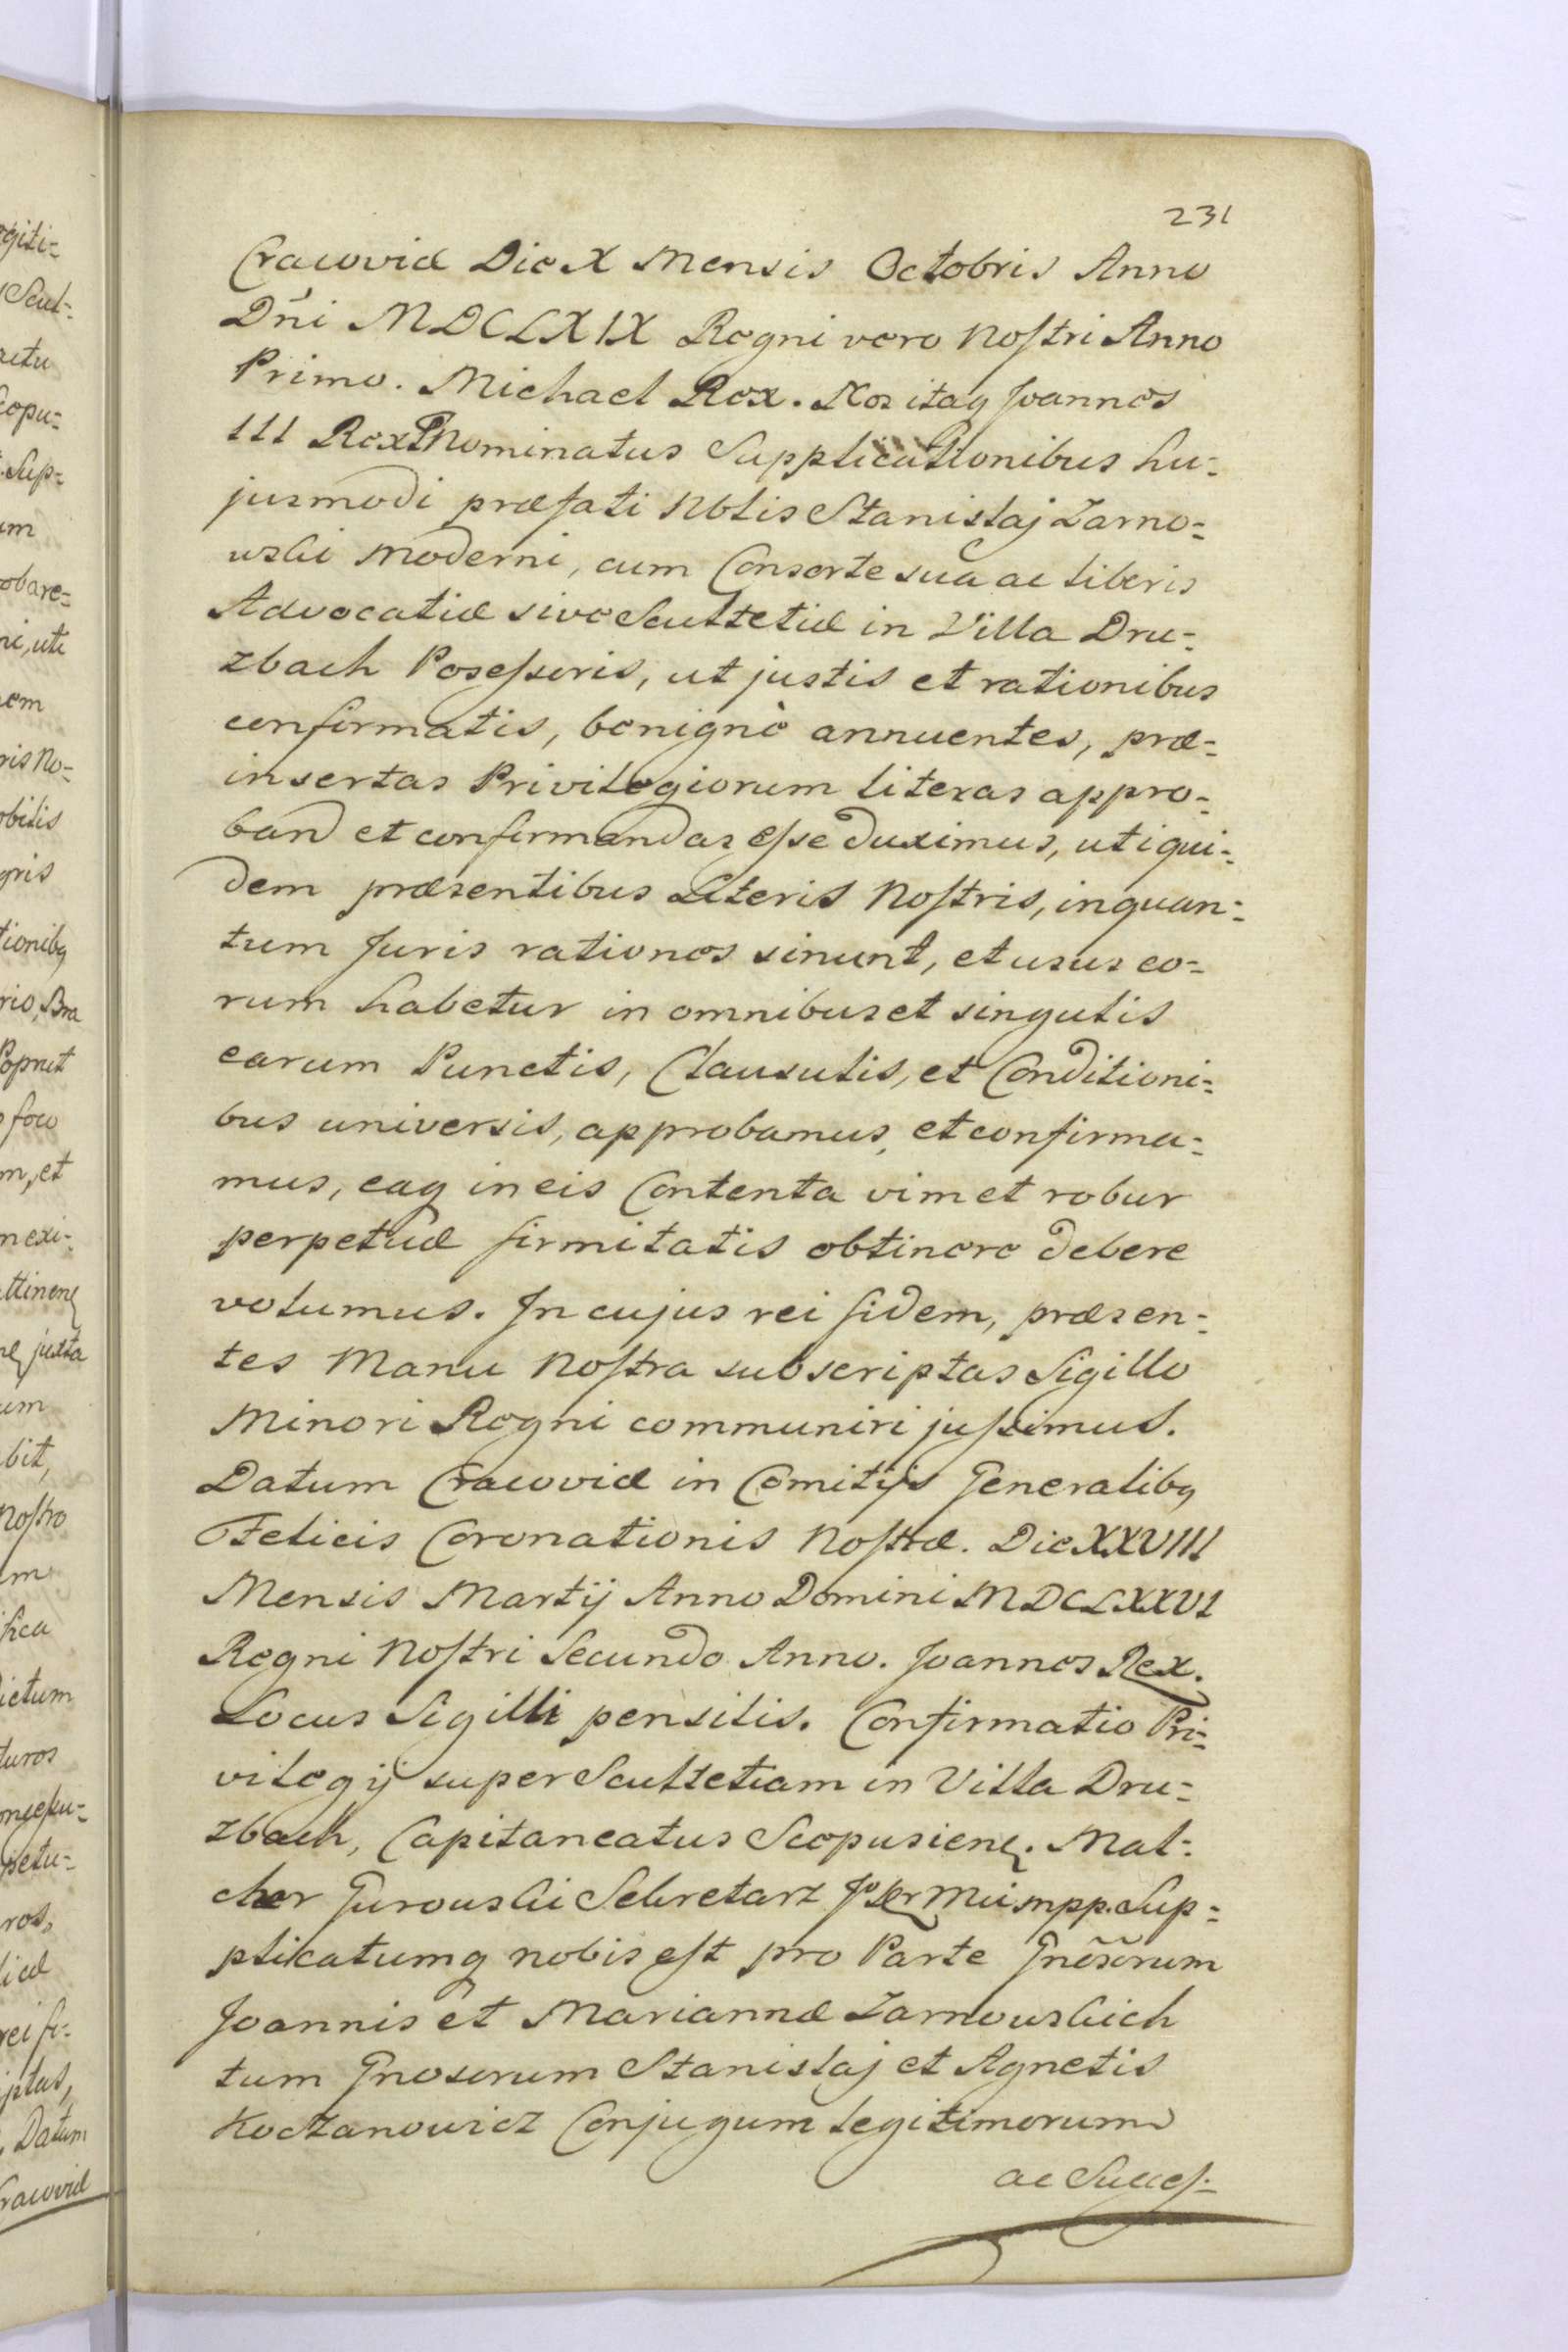 231
Cracoviæ Die X Mensis Octobris Anno
Dñi MDCLXIX Regni vero Nostri Anno
Primo. Michael Rex. Nos itaq Joannes
III Rex Pnominatus Supplicationibus hu-
jusmodi præfati Nblis Stanislaj Zarno-
wski moderni, cum Consorte sua ac liberis
Advocatiæ sive Scultetiæ in Villa Dru-
zbach Posessoris, ut justis et rationibus
confirmatis, benignè annuentes, præ-
insertas Privilegiorum literas appro-
band et confirmandas esse duximus, uti qui-
dem præsentibus Literis Nostris, inquan-
tum Juris rationes sinunt, et usus eo-
rum habetur in omnibus et singulis
earum Punctis, Clausulis, et Conditioni-
bus universis, approbamus, et confirma-
mus, eaq in eis Contenta vim et robur
perpetuæ firmitatis obtinere debere
volumus. In cujus rei fidem, præsen-
tes Manu Nostra subscriptas Sigillo
Minori Regni communiri jussimus.
Datum Cracoviæ in Comitijs Generalibq
Felicis Coronationis Nostræ. Die XXVIII
Mensis Martij Anno Domini MDCLXXVI
Regni Nostri Secundo Anno. Joannes Rex.
Locus Sigilli pensilis. Confirmatio Pri-
vilegij super Scultetiam in Villa Dru-
zbach, Capitaneatus Scepusien. Mal-
cher Gurowski Sekretarz mpp. Sup-
plicatumq nobis est pro Parte Gnõsõrum
Joannis et Mariannæ Zarnowskich
tum Gnosorum Stanislaj et Agnetis
Koczanowicz Conjugum legitimorum
ac Succes-